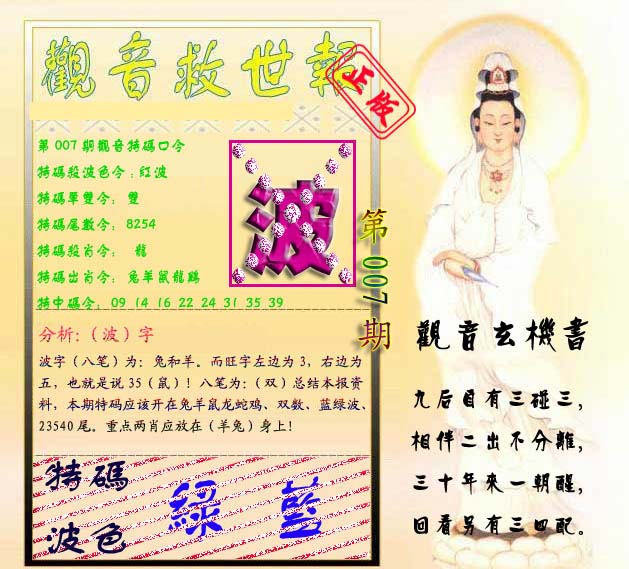 觀音救世報
正版
第007期觀音特碼口令
特碼殺波色令:紅波
特碼單雙令: 雙
特碼尾數令: 8254
特碼殺肖令: 龍
特碼出肖令: 兔羊鼠龍鷄
特中碼令: 09 14 16 22 24 31 35 39
波
第007期
分析:（波）字
波字（八笔）为：兔和羊。而旺字左边为3，右边为
五，也就是说35（鼠）！八笔为：（双）总结本报资
料，本期特码应该开在兔羊鼠龙蛇鸡、双数、蓝绿波、
23540尾。重点两肖应放在（羊兔）身上！
特碼
波色
綠 藍
觀音玄機書
九后目有三碰三，
相伴二出不分離，
三十年來一朝醒，
回看另有三四配。